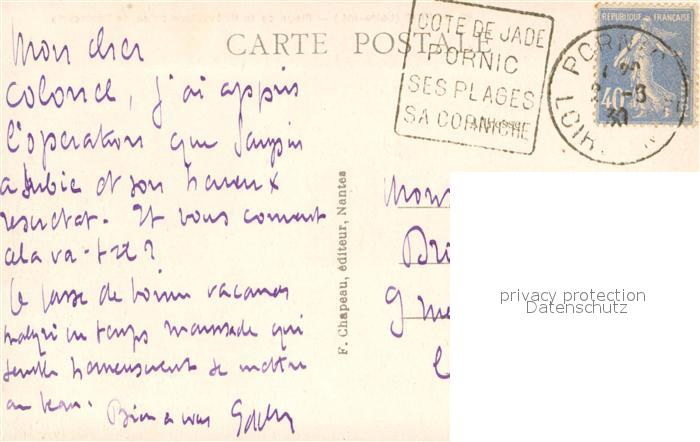 CARTE POSTALE
COTE DE JADE
PORNIC
SES PLAGES
SA CORNICHE
REPUBLIQUE FRANÇAISE
40
PORNIC
-3
30
LOIR
Mon cher
Colonel, j'ai appris
l'operation que
a subie et son heureux
resultat. Et vous comment
cela va-t-il?
Je passe de bonnes vacances
malgré un temps maussade qui
semble heureusement se mettre
au beau. Bien a vous
F. Chapeau, éditeur, Nantes
Mons
Bro
9
privacy protection
Datenschutz